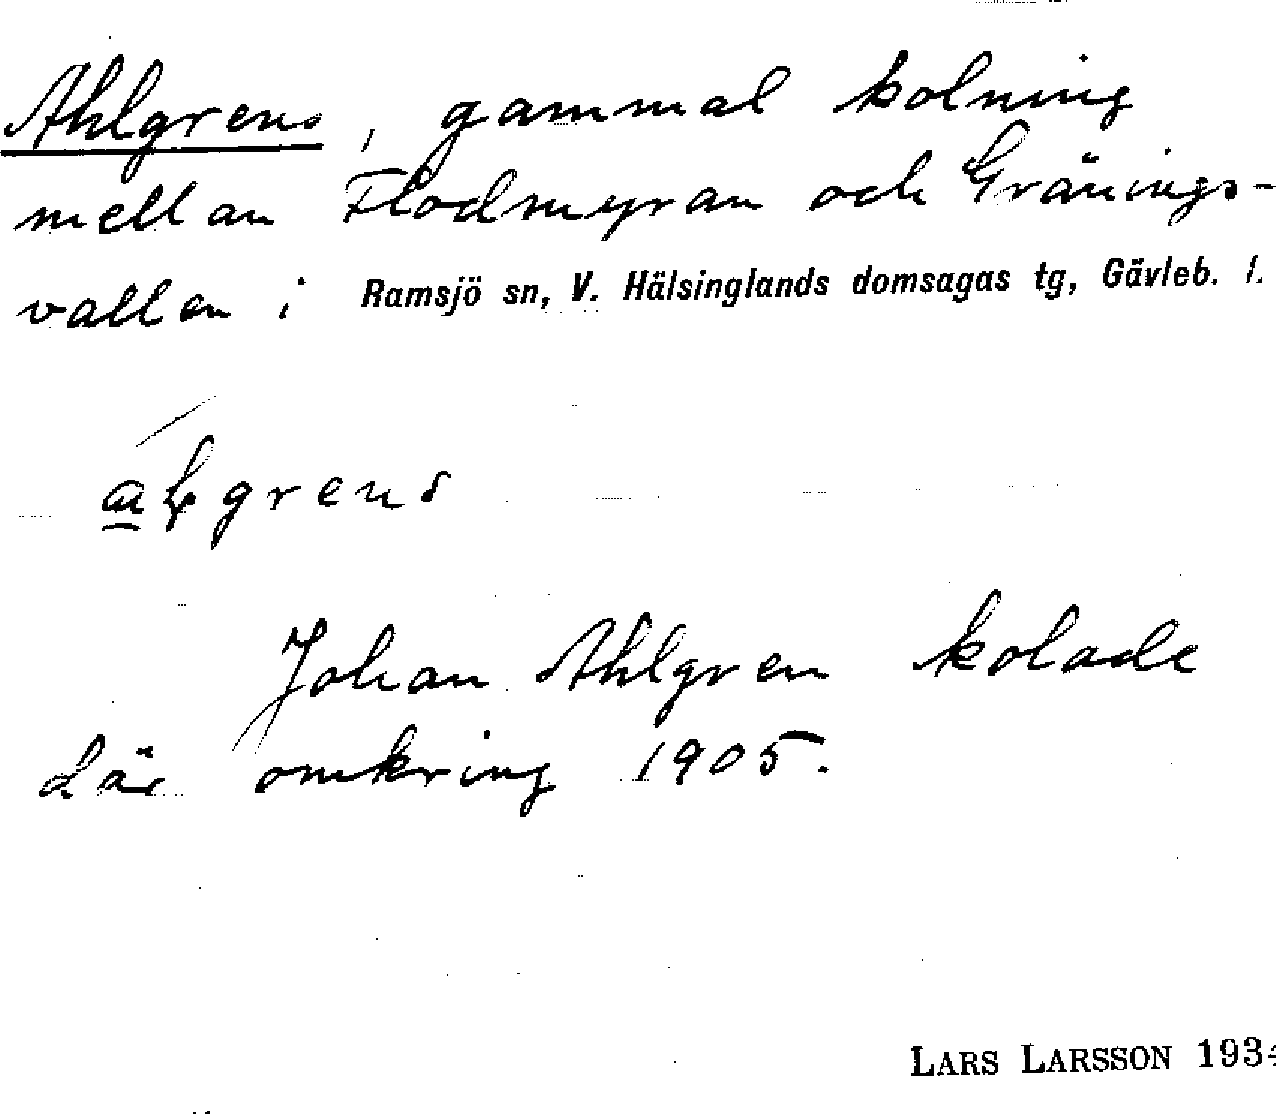 Ahlgrens, gammal kolning
mellan Flodmyran och Gränings-
vallen i Ramsjö sn, V. Hälsinglands domsagas tg, Gävleb. l.
grens
Johan Ahlgren kolade
där omkring 1905.
LARS LARSSON 193